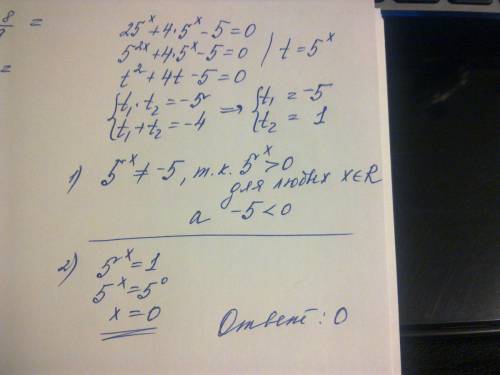 8/9 =
=
25^x+4·5^x-5=0
5^2x+4·5^x-5=0 / t=5^x
t²+4t-5=0
{t₁·t₂=-5 => {t₁=-5
{t₁+t₂=-4 {t₂=1
1) 5^x≠-5, т.к. 5^x>0
для любых x∈R
а -5<0
2) 5^x=1
5^x=5^0
x=0
Ответ: 0